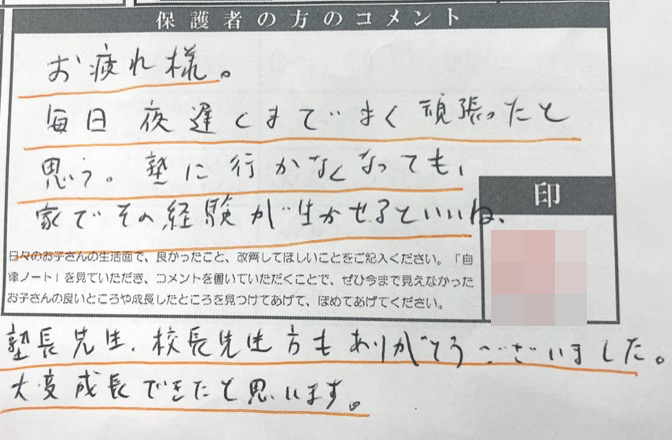 保護者の方のコメント
お疲れ様。
毎日夜遅くまでよく頑張ったと
思う。塾に行かなくなっても、
家でその経験が生かせるといいね、
印
日々のお子さんの生活面で、良かったこと、改善してほしいことをご記入ください。「自
律ノート」を見ていただき、コメントを書いていただくことで、ぜひ今まで見えなかった
お子さんの良いところや成長したところを見つけてあげて、ほめてあげてください。
塾長先生、校長先生方もありがとうございました。
大変成長できたと思います。